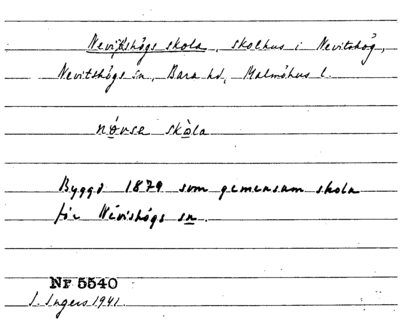 Nevitshögs skola, skolhus i Nevitshög,
Nevitshögs sn, Bara hd, Malmöhus l.
skola
Byggd 1879 som gemensam skola
för Nevishögs sn.
Nr 5540
I. Ingers 1941.